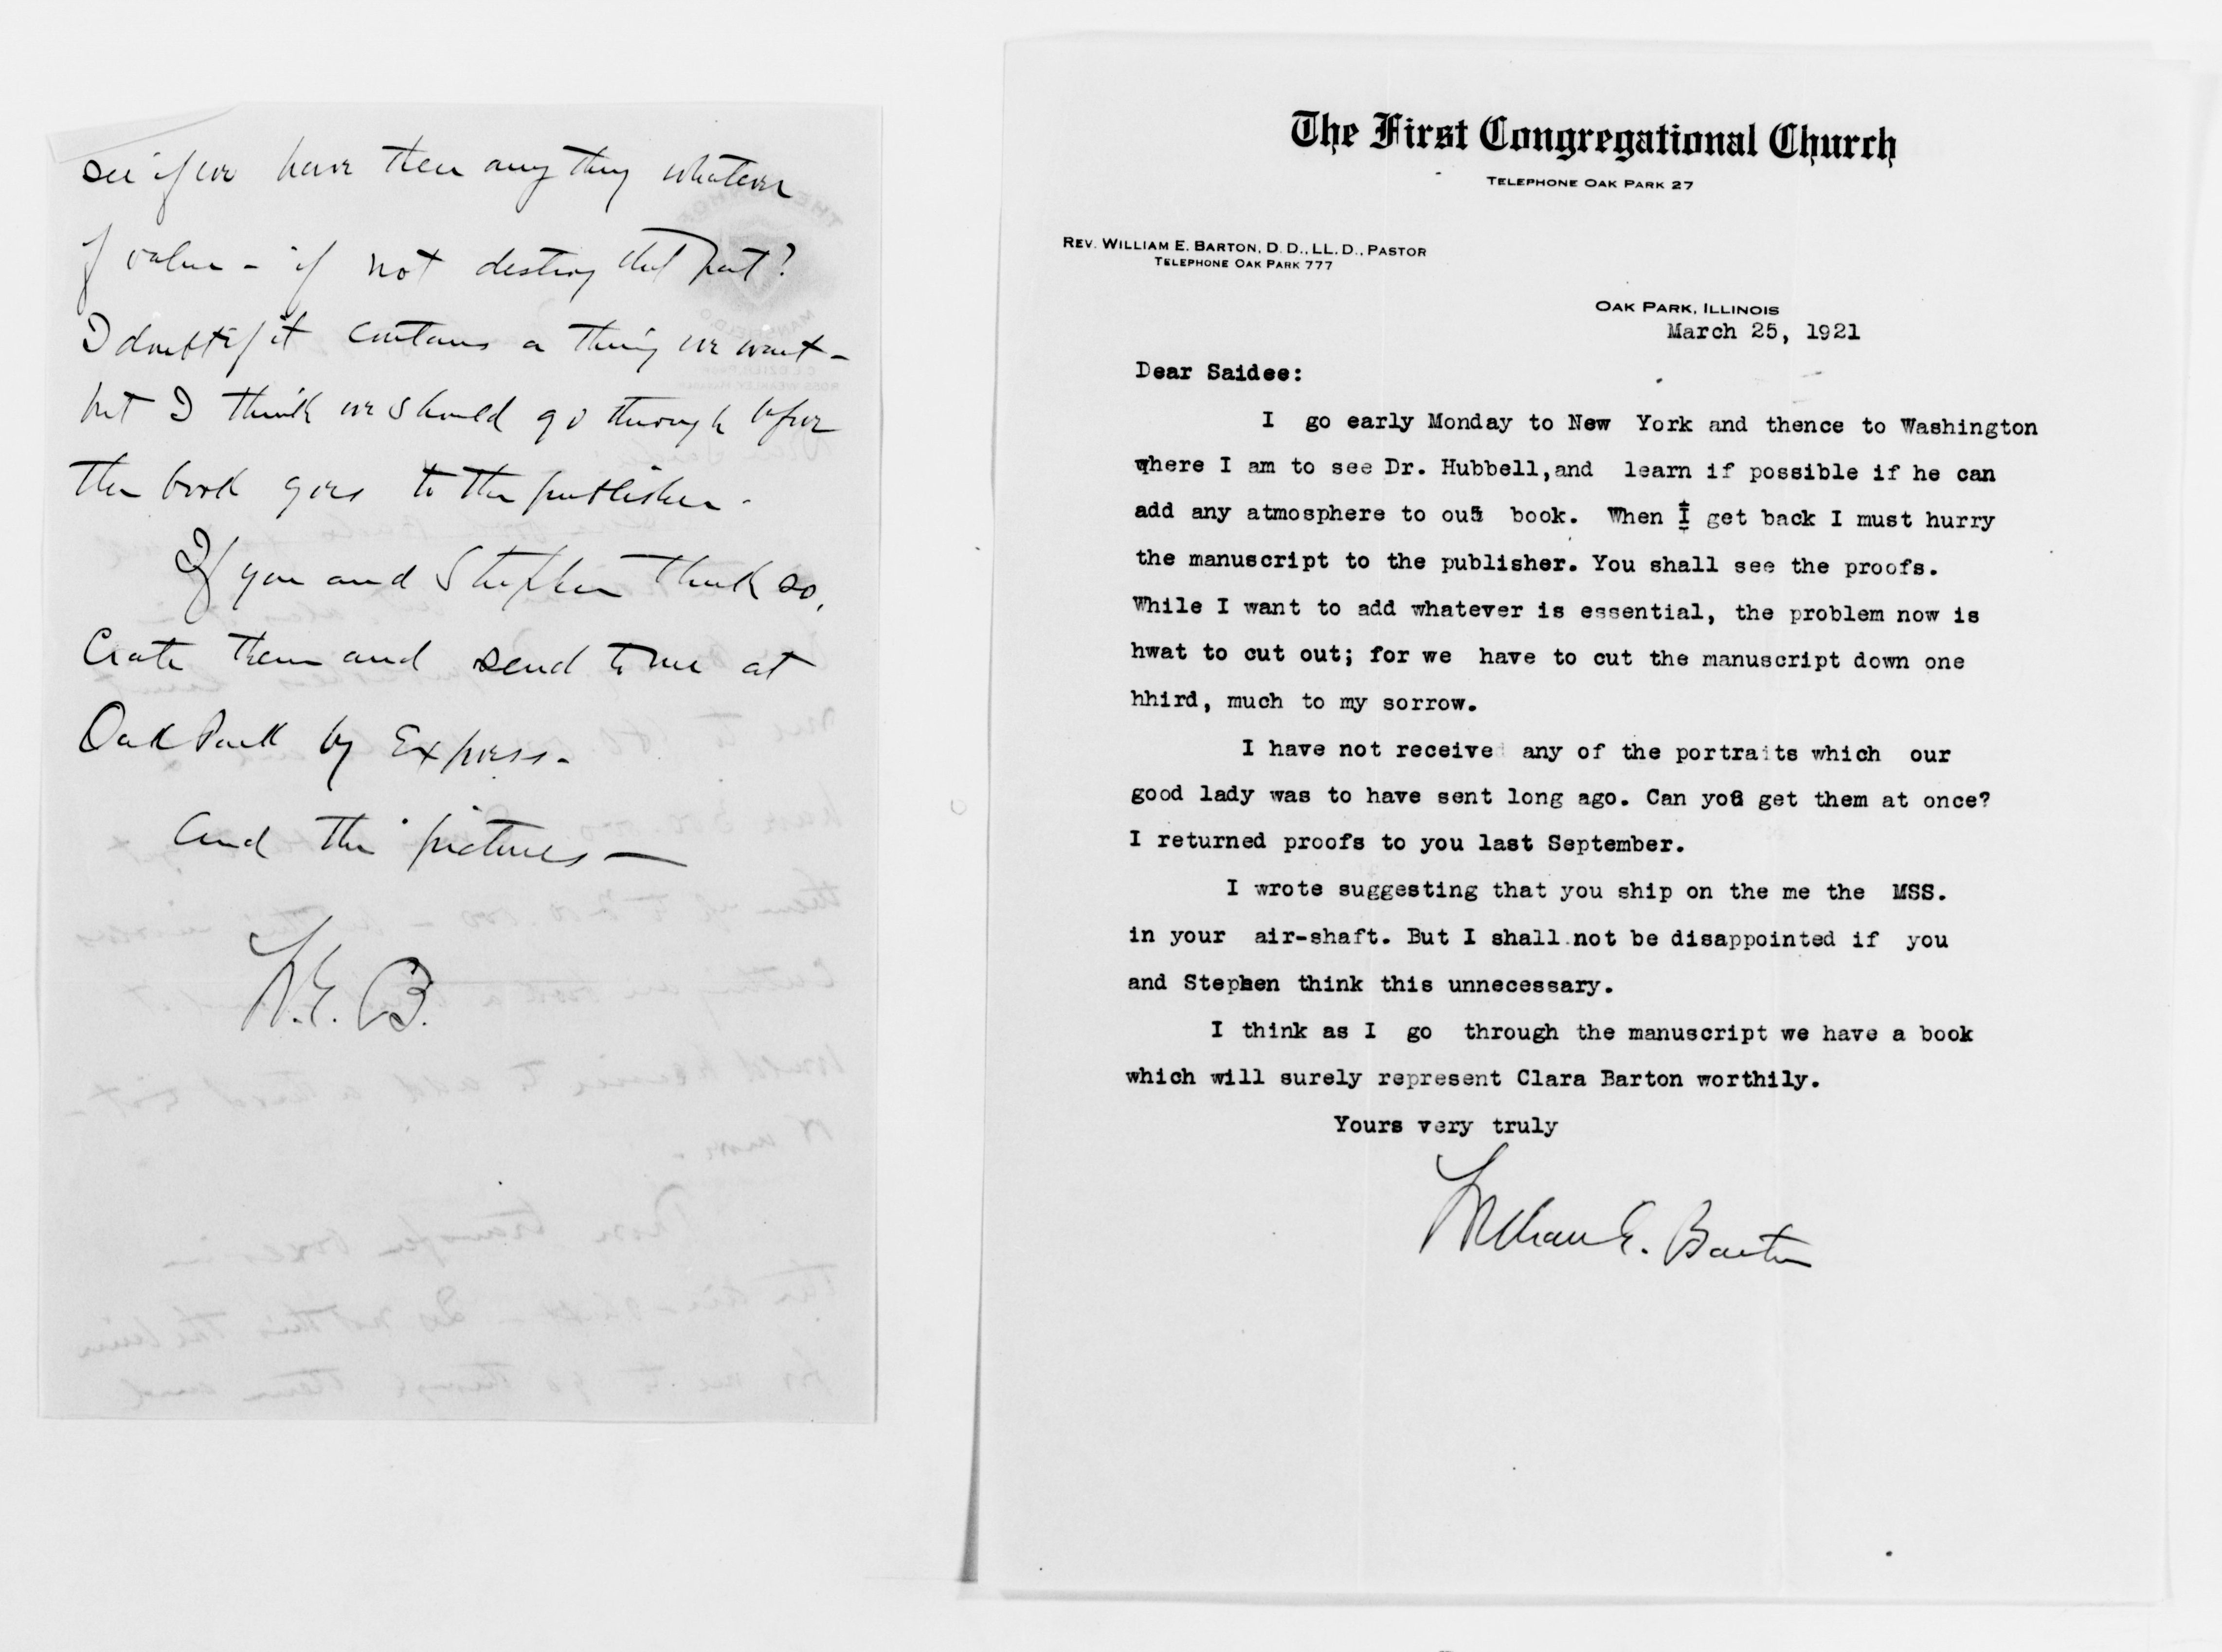 see if we have then any thing whatever
of value - if not destroy that part?
I doubt if it contains a thing we want -
but I think we should go through before
the book goes to the publisher -
If you and Stephen think so,
Crate them and send to me at
Oak Park by Express -
And the pictures —
W.E. B.
The First Congregational Church
TELEPHONE OAK PARK 27
REV. WILLIAM E. BARTON, D. D., LL. D., PASTOR
TELEPHONE OAK PARK 777
OAK PARK, ILLINOIS
March 25, 1921
Dear Saidee:
I go early Monday to New York and thence to Washington
where I am to see Dr. Hubbell, and learn if possible if he can
add any atmosphere to our book. When I get back I must hurry
the manuscript to the publisher. You shall see the proofs.
While I want to add whatever is essential, the problem now is
hwat to cut out; for we have to cut the manuscript down one
hhird, much to my sorrow.
I have not received any of the portraits which our
good lady was to have sent long ago. Can you get them at once?
I returned proofs to you last September.
I wrote suggesting that you ship on the me the MSS.
in your air-shaft. But I shall not be disappointed if you
and Stephen think this unnecessary.
I think as I go through the manuscript we have a book
which will surely represent Clara Barton worthily.
Yours very truly
William E. Barton